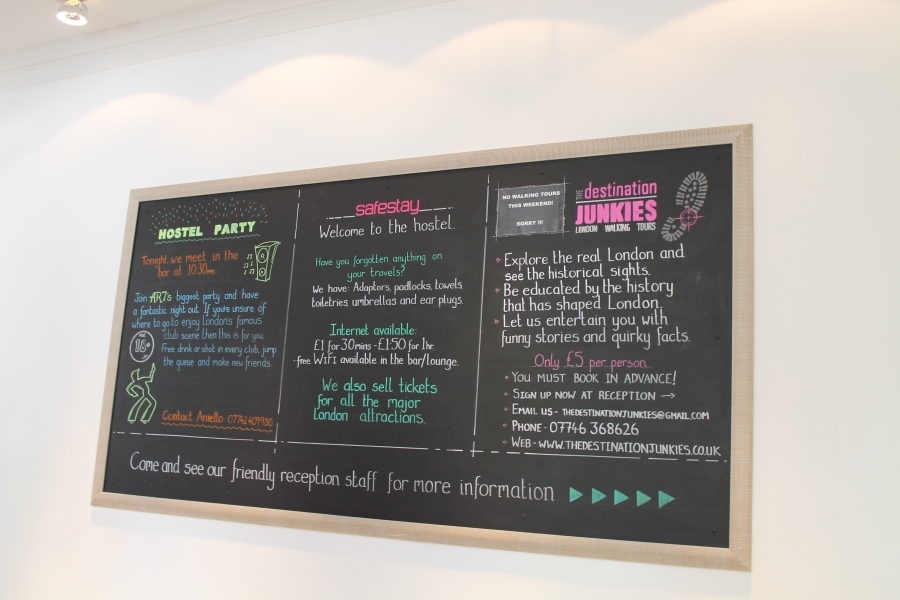 HOSTEL PARTY
Tonight we meet in the
bar at 10:30pm
Join ART's biggest party and have
a fantastic night out. If you're unsure of
where to go to enjoy London's famous
club scene then this is for you.
Free drink or shot in every club, jump
the queue and make new friends.
18+
Contact Aniello
safestay
Welcome to the hostel.
Have you forgotten anything on
your travels?
We have: Adaptors, padlocks, towels,
toiletries, umbrellas and ear plugs.
Internet available:
£1 for 30mins - £1.50 for 1hr.
-free WiFi available in the bar/lounge.
We also sell tickets
for all the major
London attractions.
NO WALKING TOURS
THIS WEEKEND!
SORRY !!!
THE destination
JUNKIES
LONDON WALKING TOURS
Explore the real London and
see the historical sights.
Be educated by the history
that has shaped London.
Let us entertain you with
funny stories and quirky facts.
Only £5 per person.
YOU MUST BOOK IN ADVANCE!
SIGN UP NOW AT RECEPTION →
EMAIL US - THEDESTINATIONJUNKIES@GMAIL.COM
PHONE - 07746 368626
WEB - WWW.THEDESTINATIONJUNKIES.CO.UK
Come and see our friendly reception staff for more information